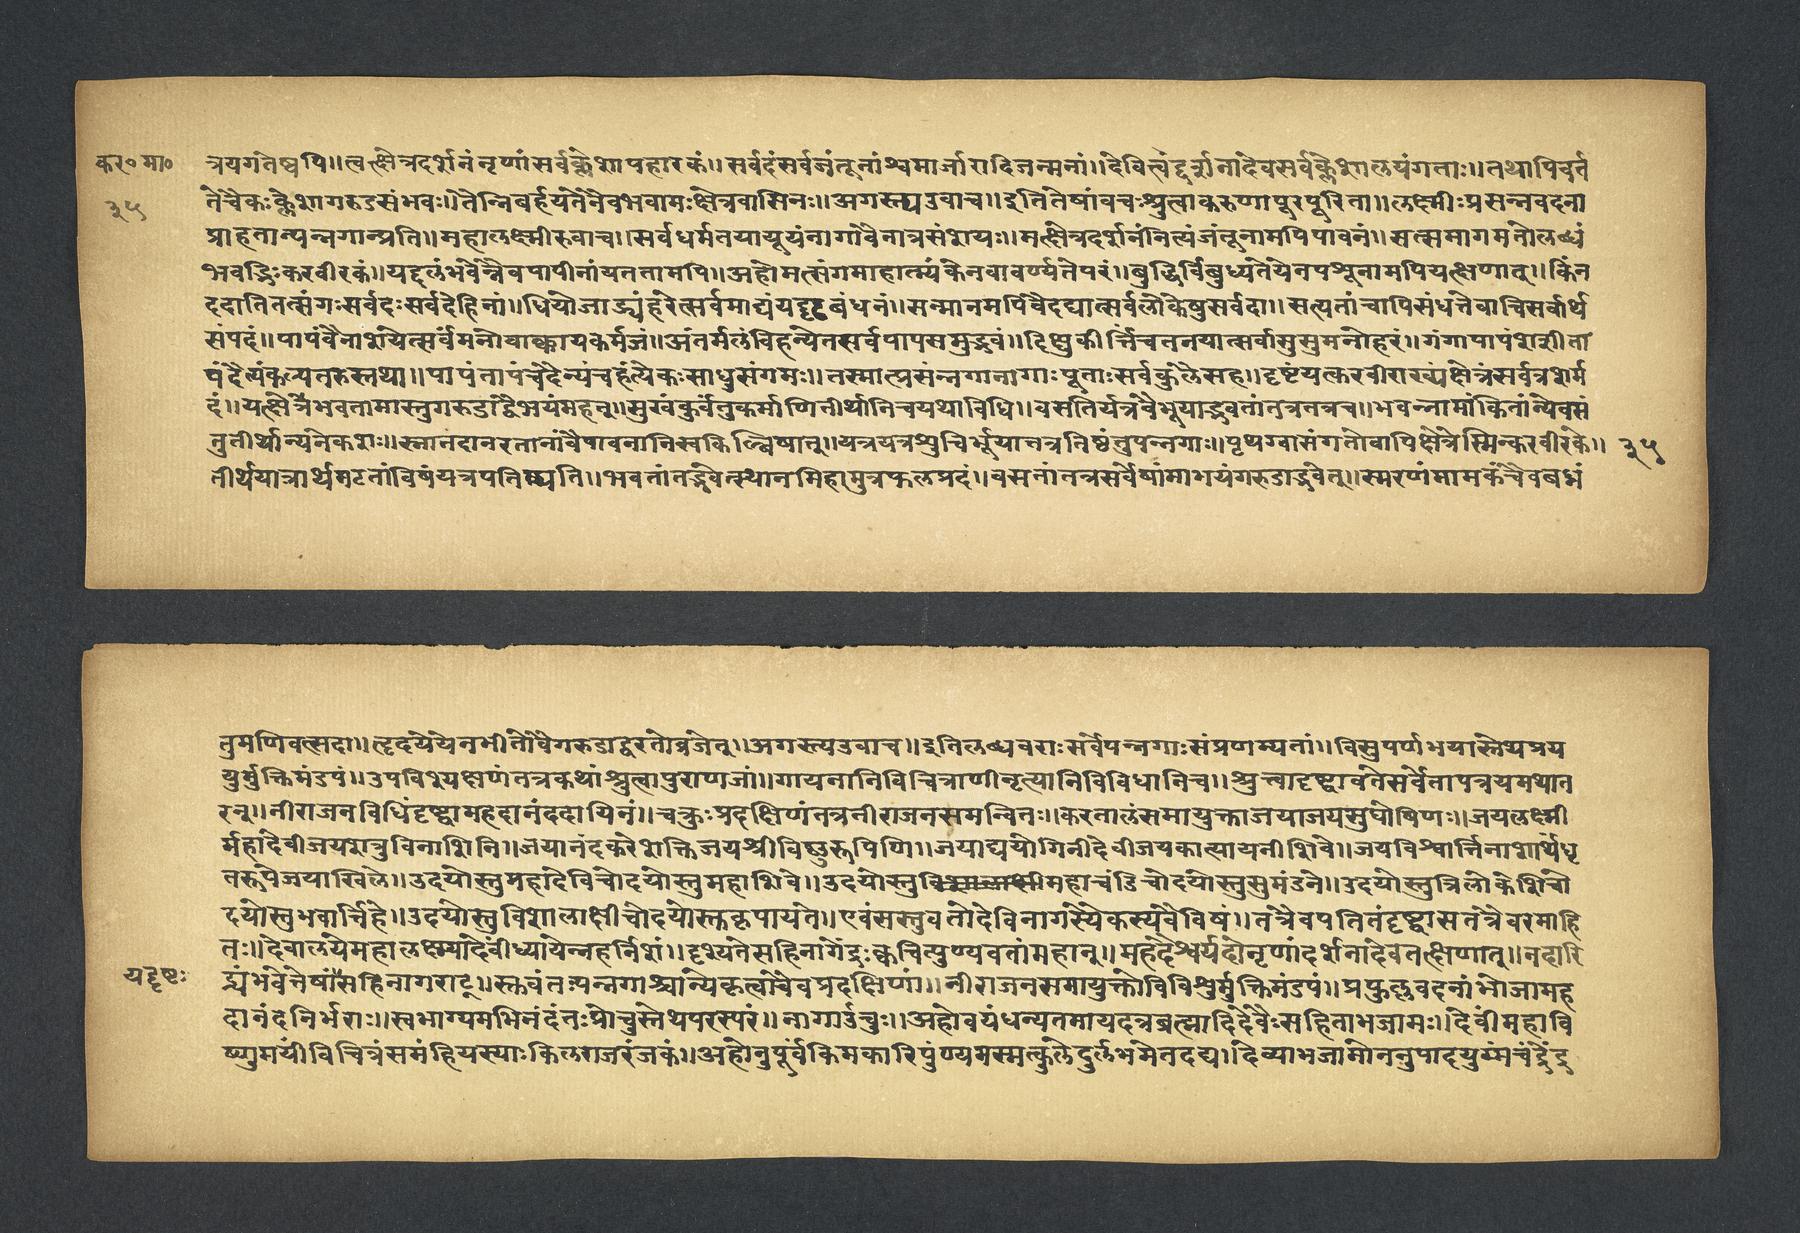 कर॰ मा॰
३५
त्रयगतेष्वपि॥त्वत्क्षेत्रदर्शनंनृणांसर्वक्लेशापहारकं॥सर्वदंसर्वजंतूनांश्चमार्जारादिजन्मनां॥देवित्वद्दर्शनादेवसर्वक्लेशालयंगताः॥तथापिवर्त
तेचैकःक्लेशोगरुडसंभवः॥तेन्निवर्हयतेनैवभवामःक्षेत्रवासिनः॥अगस्त्यउवाच॥इतितेषांवचःश्रुत्वाकरुणापूरपूरिता॥लक्ष्मीःप्रसन्नवदना
प्राहतान्पन्नगान्प्रति॥महालक्ष्मीरुवाच॥सर्वधर्मतयायूयंनागावैनात्रसंशयः॥मत्क्षेत्रदर्शनंनित्यंजंतूनामपिपावनं॥सत्समागमतोलब्धं
भवद्भिःकरवीरकं॥यद्दुर्लभंभवेन्नैवपापीनांयततामपि॥अहोमत्संगमाहात्म्यंकेनवावर्ण्यतेपरं॥बुद्धिर्विबुध्यतेयेनपशूनामपियत्क्षणात्॥किंन
ददातितत्संगःसर्वदःसर्वदेहिनां॥धियोजाड्यंहरेत्सर्वमाद्यंयद्दृढबंधनं॥सन्मानमपिवैदद्यात्सर्वलोकेषुसर्वदा॥सत्यतांचापिसंधत्तेवाचिसर्वार्थ
संपदं॥पापंवैनाशयेत्सर्वमनोवाक्कायकर्मजं॥अंतर्मलंविहन्येतसर्वपापसमुद्भवं॥दिक्षुकीर्त्तिंचतनयात्सर्वासुसुमनोहरं॥गंगापापंशशीता
पंदैत्यंकल्पतरुस्तथा॥पापंतापंचदैन्यंचहंत्येकःसाधुसंगमः॥तस्मात्प्रसंन्नगानागाःपूताःसर्वकुलैसह॥दृष्टंयत्करवीराख्यंक्षेत्रंसर्वत्रशर्म
दं॥यत्क्षेत्रेभवतामास्तुगरुडाद्वैभयंमहत्॥सुखंकुर्वंतुकर्माणितीर्थानिचयथाविधि॥वसतिर्यत्रवैभूयाद्भवतांतत्रतत्रच॥भवन्नामांकितान्येवसं
तुतीर्थान्यनेकशः॥स्नानदानरतानांवैपावनानिस्वकिल्बिषात्॥यत्रयत्रशुचिर्भूयात्तत्रतिष्ठंतुपन्नगाः॥पृथग्वासंगतोवापिक्षेत्रेस्मिन्करवीरके॥
३५
तीर्थयात्रार्थमटतांविषंयत्रपतिष्यति॥भवतांतद्भवेत्स्थानमिहामुत्रफलप्रदं॥वसतांतत्रसर्वेषांमाभयंगरुडाद्भवेत्॥स्मरणंमामकंचैवबध्नं
तुमणिवत्सदा॥हृदयेयेनभीतोवैगरुडोदूरतोव्रजेत्॥अगस्त्यउवाच॥इतिलब्धवराःसर्वेपन्नगाःसंप्रणम्यतां॥विसुपर्णभयास्तेयप्रय
युर्मुक्तिमंडपं॥उपविश्यक्षणंतत्रकथांश्रुत्वापुराणजां॥गायनानिविचित्राणीनृत्यानिविविधानिच॥श्रुत्वादृष्ट्वावतेसर्वेतापत्रयमथात
रन्॥नीराजनविधिंदृष्ट्वामहदानंददायिनं॥चक्रुःप्रदक्षिणंतत्रनीराजनसमन्वितः॥करतालंसमायुक्ताजयाजयसुघोषिणः॥जयलक्ष्मी
र्महादेवीजयशत्रुविनाशिनि॥जयानंदकरेशक्तिजयश्रीविष्णुरूपिणि॥जयाद्ययोगिनीदेवीजयकात्यायनीशिवे॥जयविश्वार्त्तिनाशार्थेधृ
तरूपेजयाखिले॥उदयोस्तुमहादेविचोदयोस्तुमहाशिवे॥उदयोस्तुविमहाचंडिचोदयोस्तुसुमंडने॥उदयोस्तुत्रिलोकेशिचो
दयोस्तुभवार्त्तिहे॥उदयोस्तुविशालाक्षीचोदयोस्तकृपायते॥एवंसस्तुवतोदेविनागस्यैकस्यवैविषं॥तत्रैवपतितंदृष्ट्वासतत्रैवरमाहि
तः॥देवालयेमहालक्ष्म्यादेवीध्यायेन्नहर्निशं॥दृश्यतेसहिनागेंद्रःक्वचित्पुण्यवतांमहान्॥महदैश्वर्यदोनृणांदर्शनादेवतत्क्षिणात्॥नदारि
यदृष्टः
द्र्यंभवेत्तेषांसहिनागराट्॥स्तवंतःपन्नगाश्चान्येकृत्वाचैवप्रदक्षिणां॥नीराजनसमायुक्तोविविशुर्मुक्तिमंडपं॥प्रफुल्लवदनांभोजामह
दानंदनिर्भराः॥स्वभाग्यमभिनंदंतःप्रोचुस्तेथपरस्परं॥नागाऊचुः॥अहोवयंधन्यतमायदत्रब्रह्मादिदेवैःसहिताभजामः॥देवींमहावि
ष्णुमयींविचित्रंसमंहियस्याःकिलराजरंजकं॥अहोनुपूर्वंकिमकारिपुंण्यमस्मत्कुलेदुर्लभमेनदद्य॥दिव्याभजामोननुपादयुग्मंचंद्रेंदु